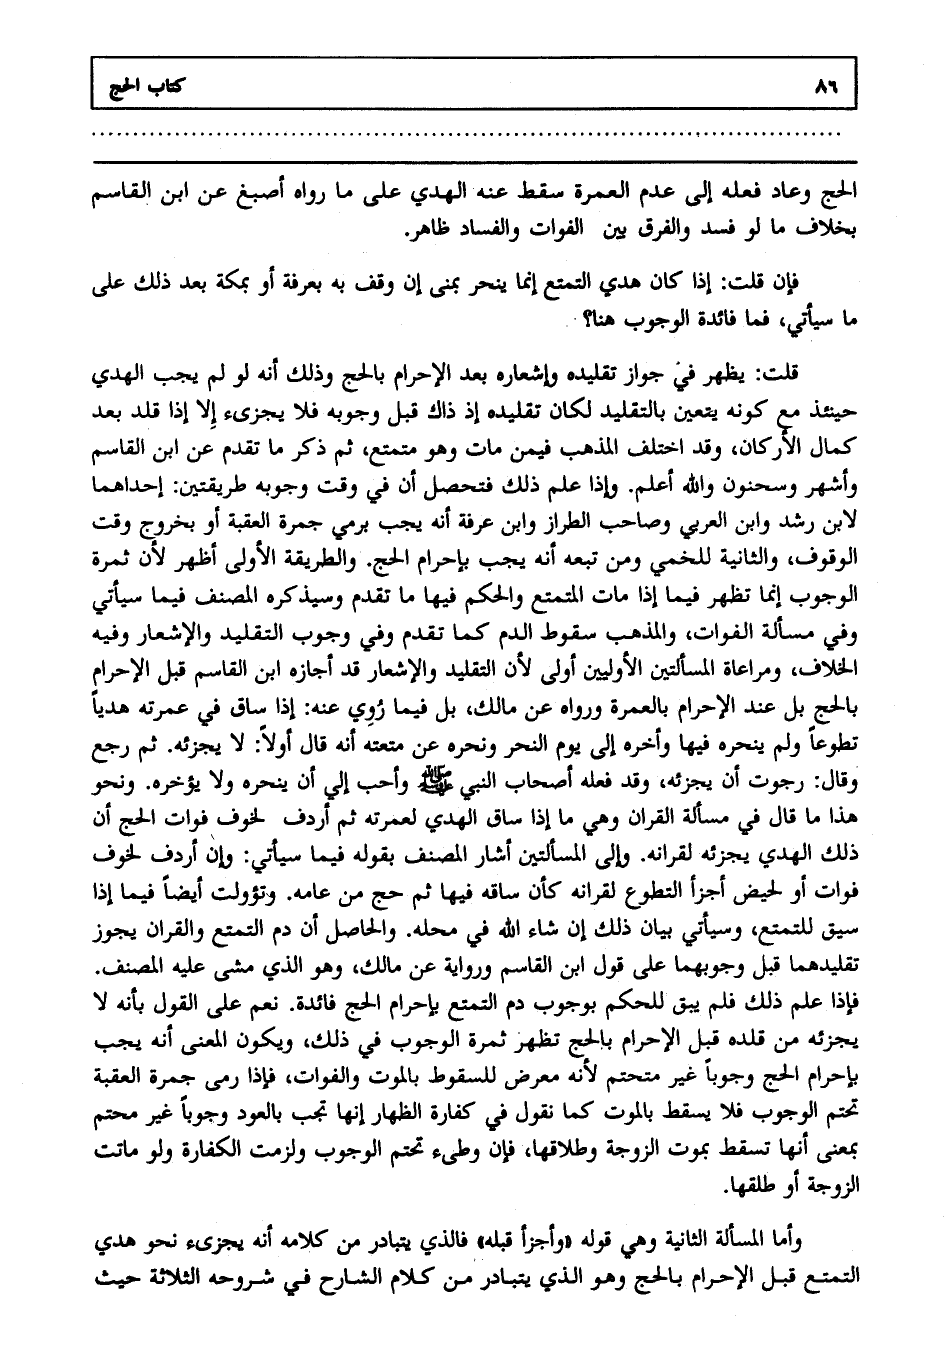 ٨٦ كتاب الحج
الحج وعاد فعله إلى عدم العمرة سقط عنه الهدي على ما رواه أصبغ عن ابن القاسم
بخلاف ما لو فسد والفرق بين الفوات والفساد ظاهر.
فإن قلت: إذا كان هدي التمتع إنما ينحر بمنى إن وقف به بعرفة أو بمكة بعد ذلك على
ما سيأتي، فما فائدة الوجوب هنا؟
قلت: يظهر في جواز تقليده وإشعاره بعد الإحرام بالحج وذلك أنه لو لم يجب الهدي
حينئذ مع كونه يتعين بالتقليد لكان تقليده إذ ذاك قبل وجوبه فلا يجزىء إلا إذا قلد بعد
كمال الأركان، وقد اختلف المذهب فيمن مات وهو متمتع، ثم ذكر ما تقدم عن ابن القاسم
وأشهر وسحنون والله أعلم. وإذا علم ذلك فتحصل أن في وقت وجوبه طريقتين: إحداهما
لابن رشد وابن العربي وصاحب الطراز وابن عرفة أنه يجب برمي جمرة العقبة أو بخروج وقت
الوقوف، والثانية للخمي ومن تبعه أنه يجب بإحرام الحج. والطريقة الأولى أظهر لأن ثمرة
الوجوب إنما تظهر فيما إذا مات المتمتع والحكم فيها ما تقدم وسيذكره المصنف فيما سيأتي
وفي مسألة الفوات، والمذهب سقوط الدم كما تقدم وفي وجوب التقليد والإشعار وفيه
الخلاف، ومراعاة المسألتين الأوليين أولى لأن التقليد والإشعار قد أجازه ابن القاسم قبل الإحرام
بالحج بل عند الإحرام بالعمرة ورواه عن مالك، بل فيما رُوِي عنه: إذا ساق في عمرته هدياً
تطوعاً ولم ينحره فيها وأخره إلى يوم النحر ونحره عن متعته أنه قال أولاً: لا يجزئه. ثم رجع
وقال: رجوت أن يجزئه، وقد فعله أصحاب النبي ﷺ وأحب إلي أن ينحره ولا يؤخره. ونحو
هذا ما قال في مسألة القران وهي ما إذا ساق الهدي لعمرته ثم أردف لخوف فوات الحج أن
ذلك الهدي يجزئه لقرانه. وإلى المسألتين أشار المصنف بقوله فيما سيأتي: وإن أردف لخوف
فوات أو لحيض أجزأ التطوع لقرانه كأن ساقه فيها ثم حج من عامه. وتؤولت أيضاً فيما إذا
سيق للتمتع، وسيأتي بيان ذلك إن شاء الله في محله. والحاصل أن دم التمتع والقران يجوز
تقليدهما قبل وجوبهما على قول ابن القاسم ورواية عن مالك، وهو الذي مشى عليه المصنف.
فإذا علم ذلك فلم يبق للحكم بوجوب دم التمتع بإحرام الحج فائدة. نعم على القول بأنه لا
يجزئه من قلده قبل الإحرام بالحج تظهر ثمرة الوجوب في ذلك، ويكون المعنى أنه يجب
بإحرام الحج وجوباً غير متحتم لأنه معرض للسقوط بالموت والفوات، فإذا رمى جمرة العقبة
تحتم الوجوب فلا يسقط بالموت كما نقول في كفارة الظهار إنها تجب بالعود وجوباً غير محتم
بمعنى أنها تسقط بموت الزوجة وطلاقها، فإن وطىء تحتم الوجوب ولزمت الكفارة ولو ماتت
الزوجة أو طلقها.
وأما المسألة الثانية وهي قوله «وأجزأ قبله» فالذي يتبادر من كلامه أنه يجزىء نحو هدي
التمتع قبل الإحرام بالحج وهو الذي يتبادر من كلام الشارح في شروحه الثلاثة حيث